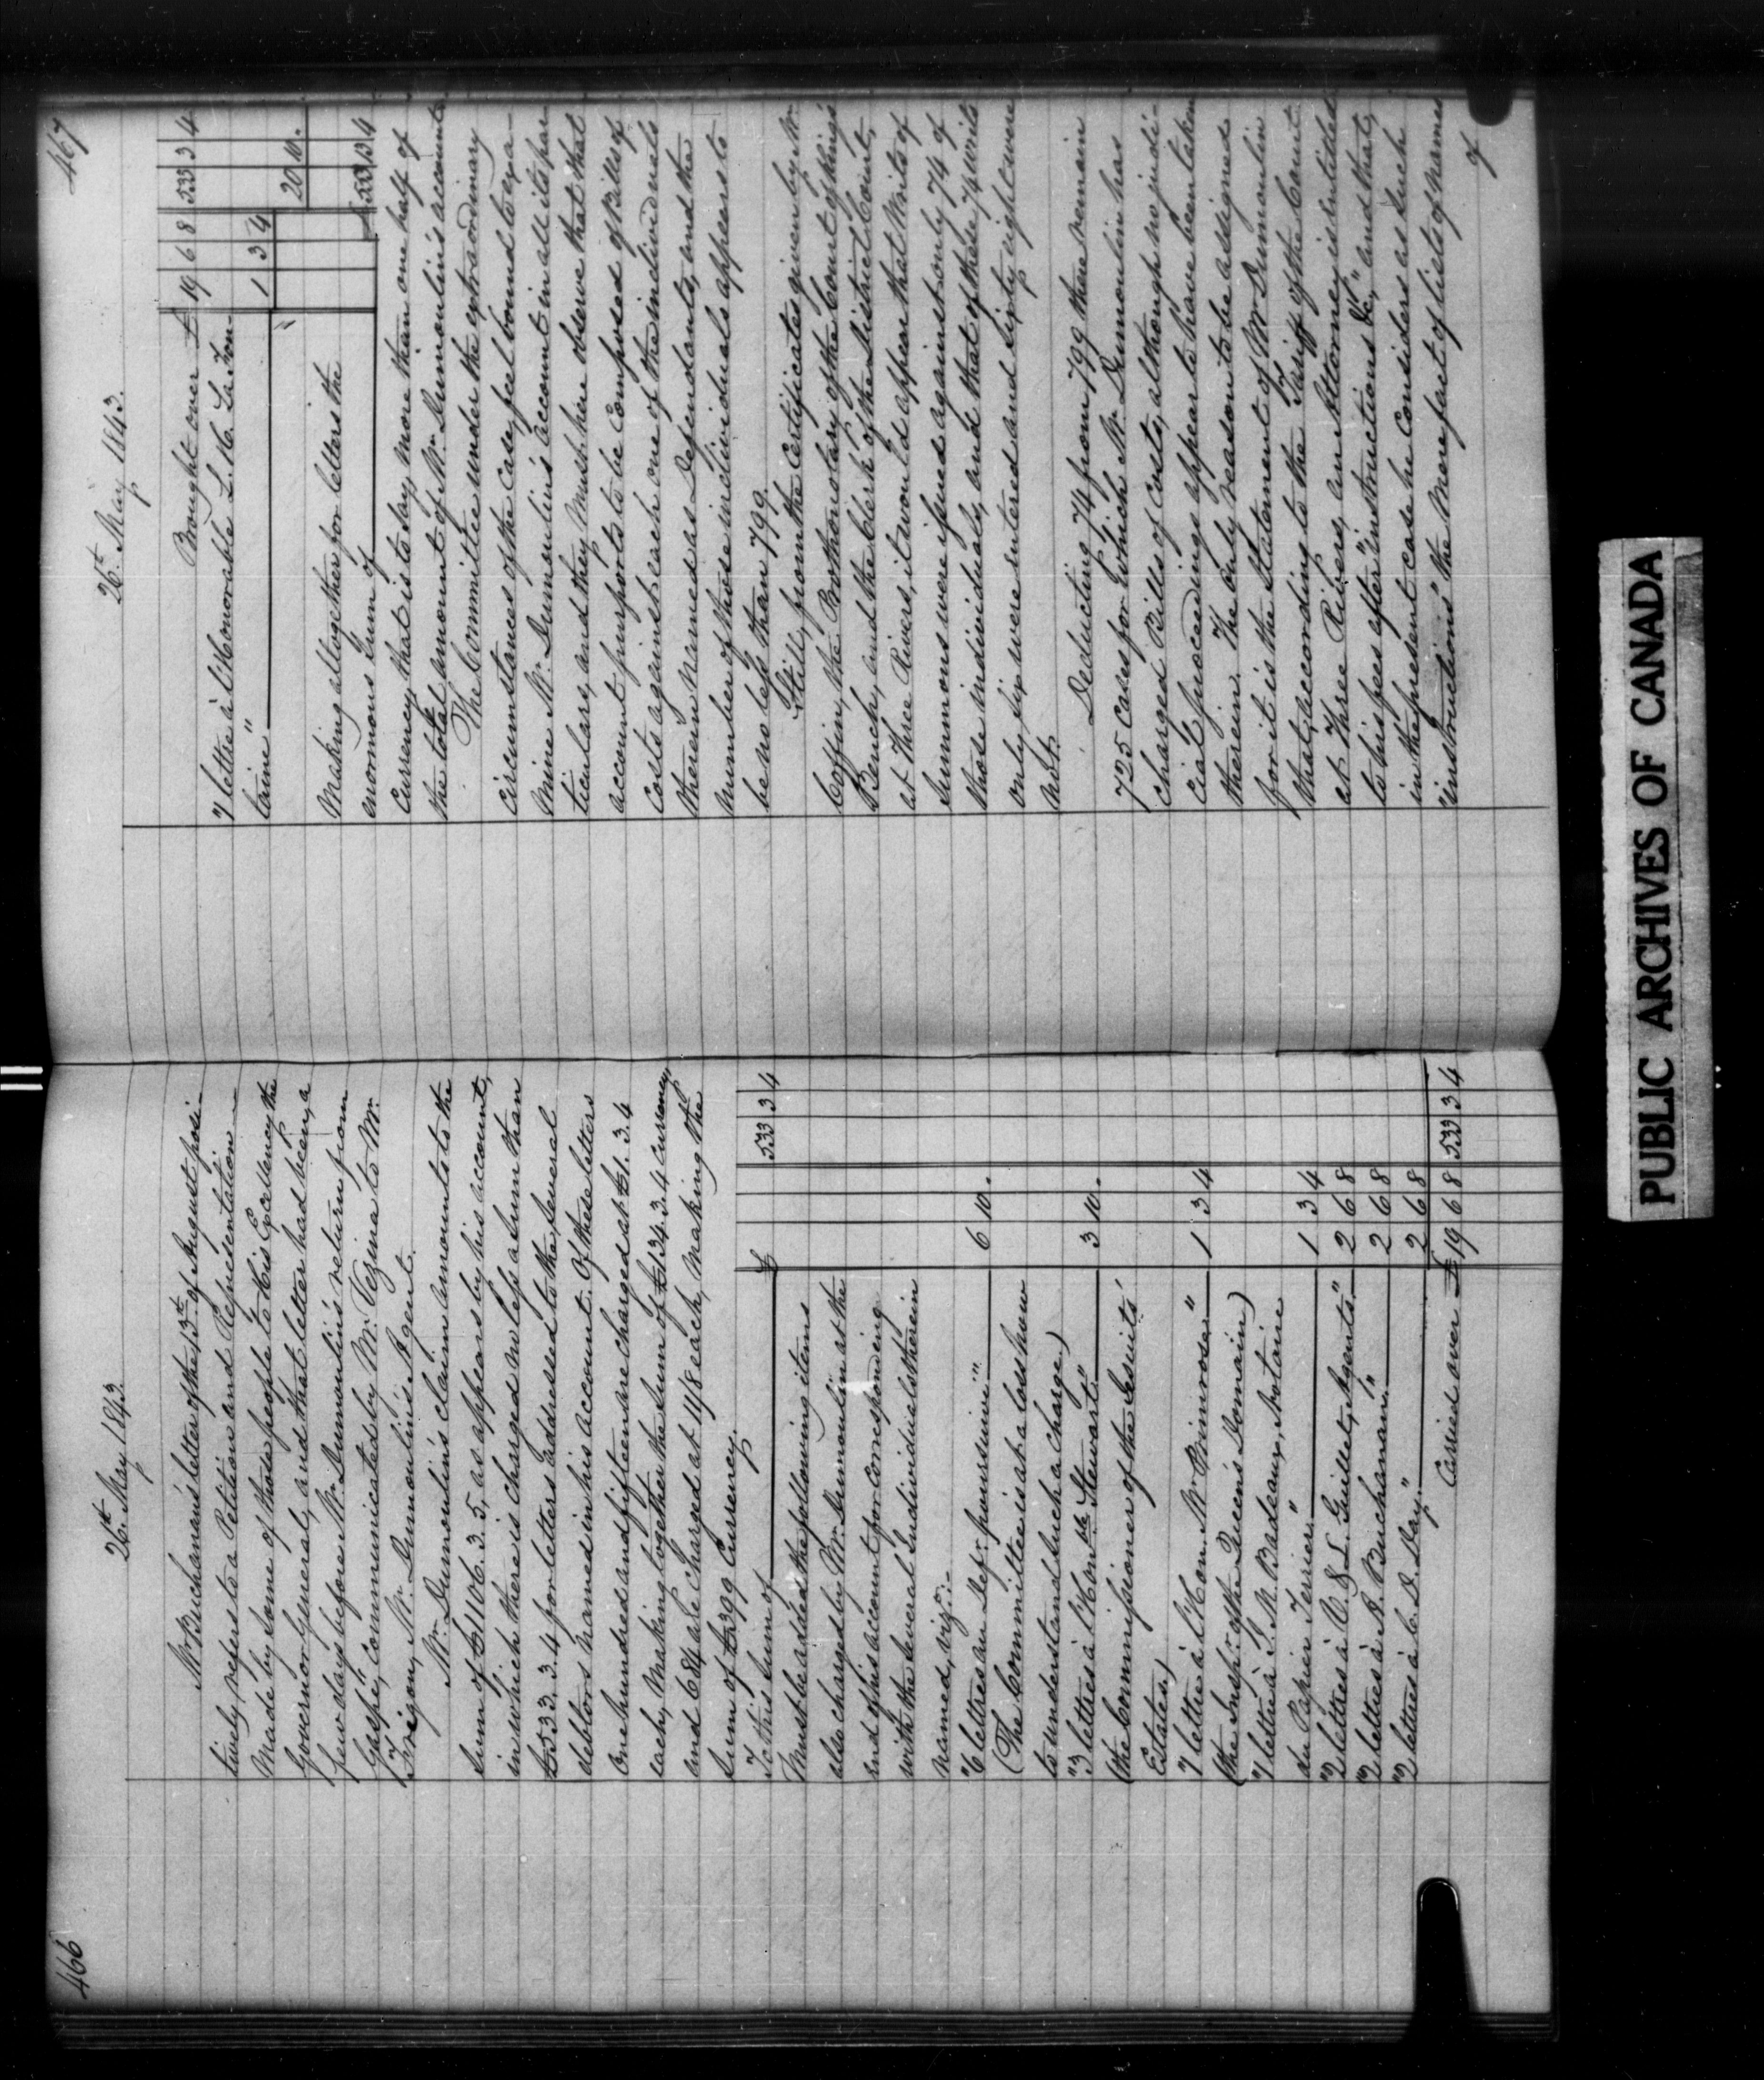 466
26th May 1843.
Mr Buchanan's letter of the 13th of August posi-
tively refers to a Petition and Representation
made by some of those people to His Excellency the
Governor General, and that letter had been, a
few days before Mr. Dumoulin's return from
Gaspé, communicated by Mr. Vezina to Mr.
Frigon, Mr. Dumoulin's Agent.
Mr. Dumoulin's claim amounts to the
sum of £1106. 3. 5, as appears by his account,
in which there is charged no less a sum than
£533. 3. 4 for letters addressed to the several
debtors named in his account. Of these letters
one hundred and fifteen are charged at £1. 3. 4
each, making together the sum of £134. 3. 4 currency,
and 684 are charged at 11/8 each, making the
sum of £399 Currency.
To this sum of £ 533 3 4
must be added the following items
also charged by Mr. Dumoulin at the
end of his account for corresponding
with the several Individuals therein
named, viz:-
"6 lettres au Defr. poursuivi" 6 10 .
(The Committee is at a loss how
to understand such a charge.)
"3 lettres à l'Honble Stewart" 3 10 .
(the Commissioner of the Jesuits'
Estates)
"1 lettre à l'Hon. Mr Primrose" 1 3 4
(the Inspr. of the Queen's Domain)
"1 lettre à J. M. Badeaux, Notaire
du Papier Terrier" 1 3 4
"2 lettres à V. & L. Guillet, Agents" 2 6 8
"2 lettres à A. Buchanan" 2 6 8
"2 lettres à C. D. Day" 2 6 8
Carried over £ 19 6 8 533 3 4
467
26th May 1843.
Brought over £ 19 6 8 533 3 4
"1 lettre à l'Honorable L. H. La Fon-
taine" 1 3 4
20 10 .
Making altogether for letters the
enormous sum of £553 13 4
Currency, that is to say, more than one half of
the total amount of Mr. Dumoulin's account.
The Committee under the extraordinary
circumstances of the case, feel bound to exa-
mine Mr. Dumoulin's account in all its par-
ticulars, and they must here observe that that
account purports to be composed of Bills of
Costs against each one of the individuals
therein named as Defendants, and the
number of those individuals appears to
be no less than 799.
Still, from the Certificates given by Mr.
Coffin, the Prothonotary of the Court of King's
Bench, and the Clerk of the District Court,
at Three Rivers, it would appear that Writs of
Summons were issued against only 74 of
those individuals, and that of these 74 writs
only six were entered and sixty eight were
not.
Deducting 74 from 799 there remain
725 cases for which Mr. Dumoulin has
charged Bills of Costs, although no judi-
cial proceedings appear to have been taken
therein. The only reason to be assigned
for it is the statement of Mr Dumoulin
that, according to the Tariff of the Court
at Three Rivers, an Attorney is entitled
to his fees after "instructions &c," and that,
in the present case he considers as such
"instructions" the mere fact of lists of names
of
PUBLIC ARCHIVES OF CANADA